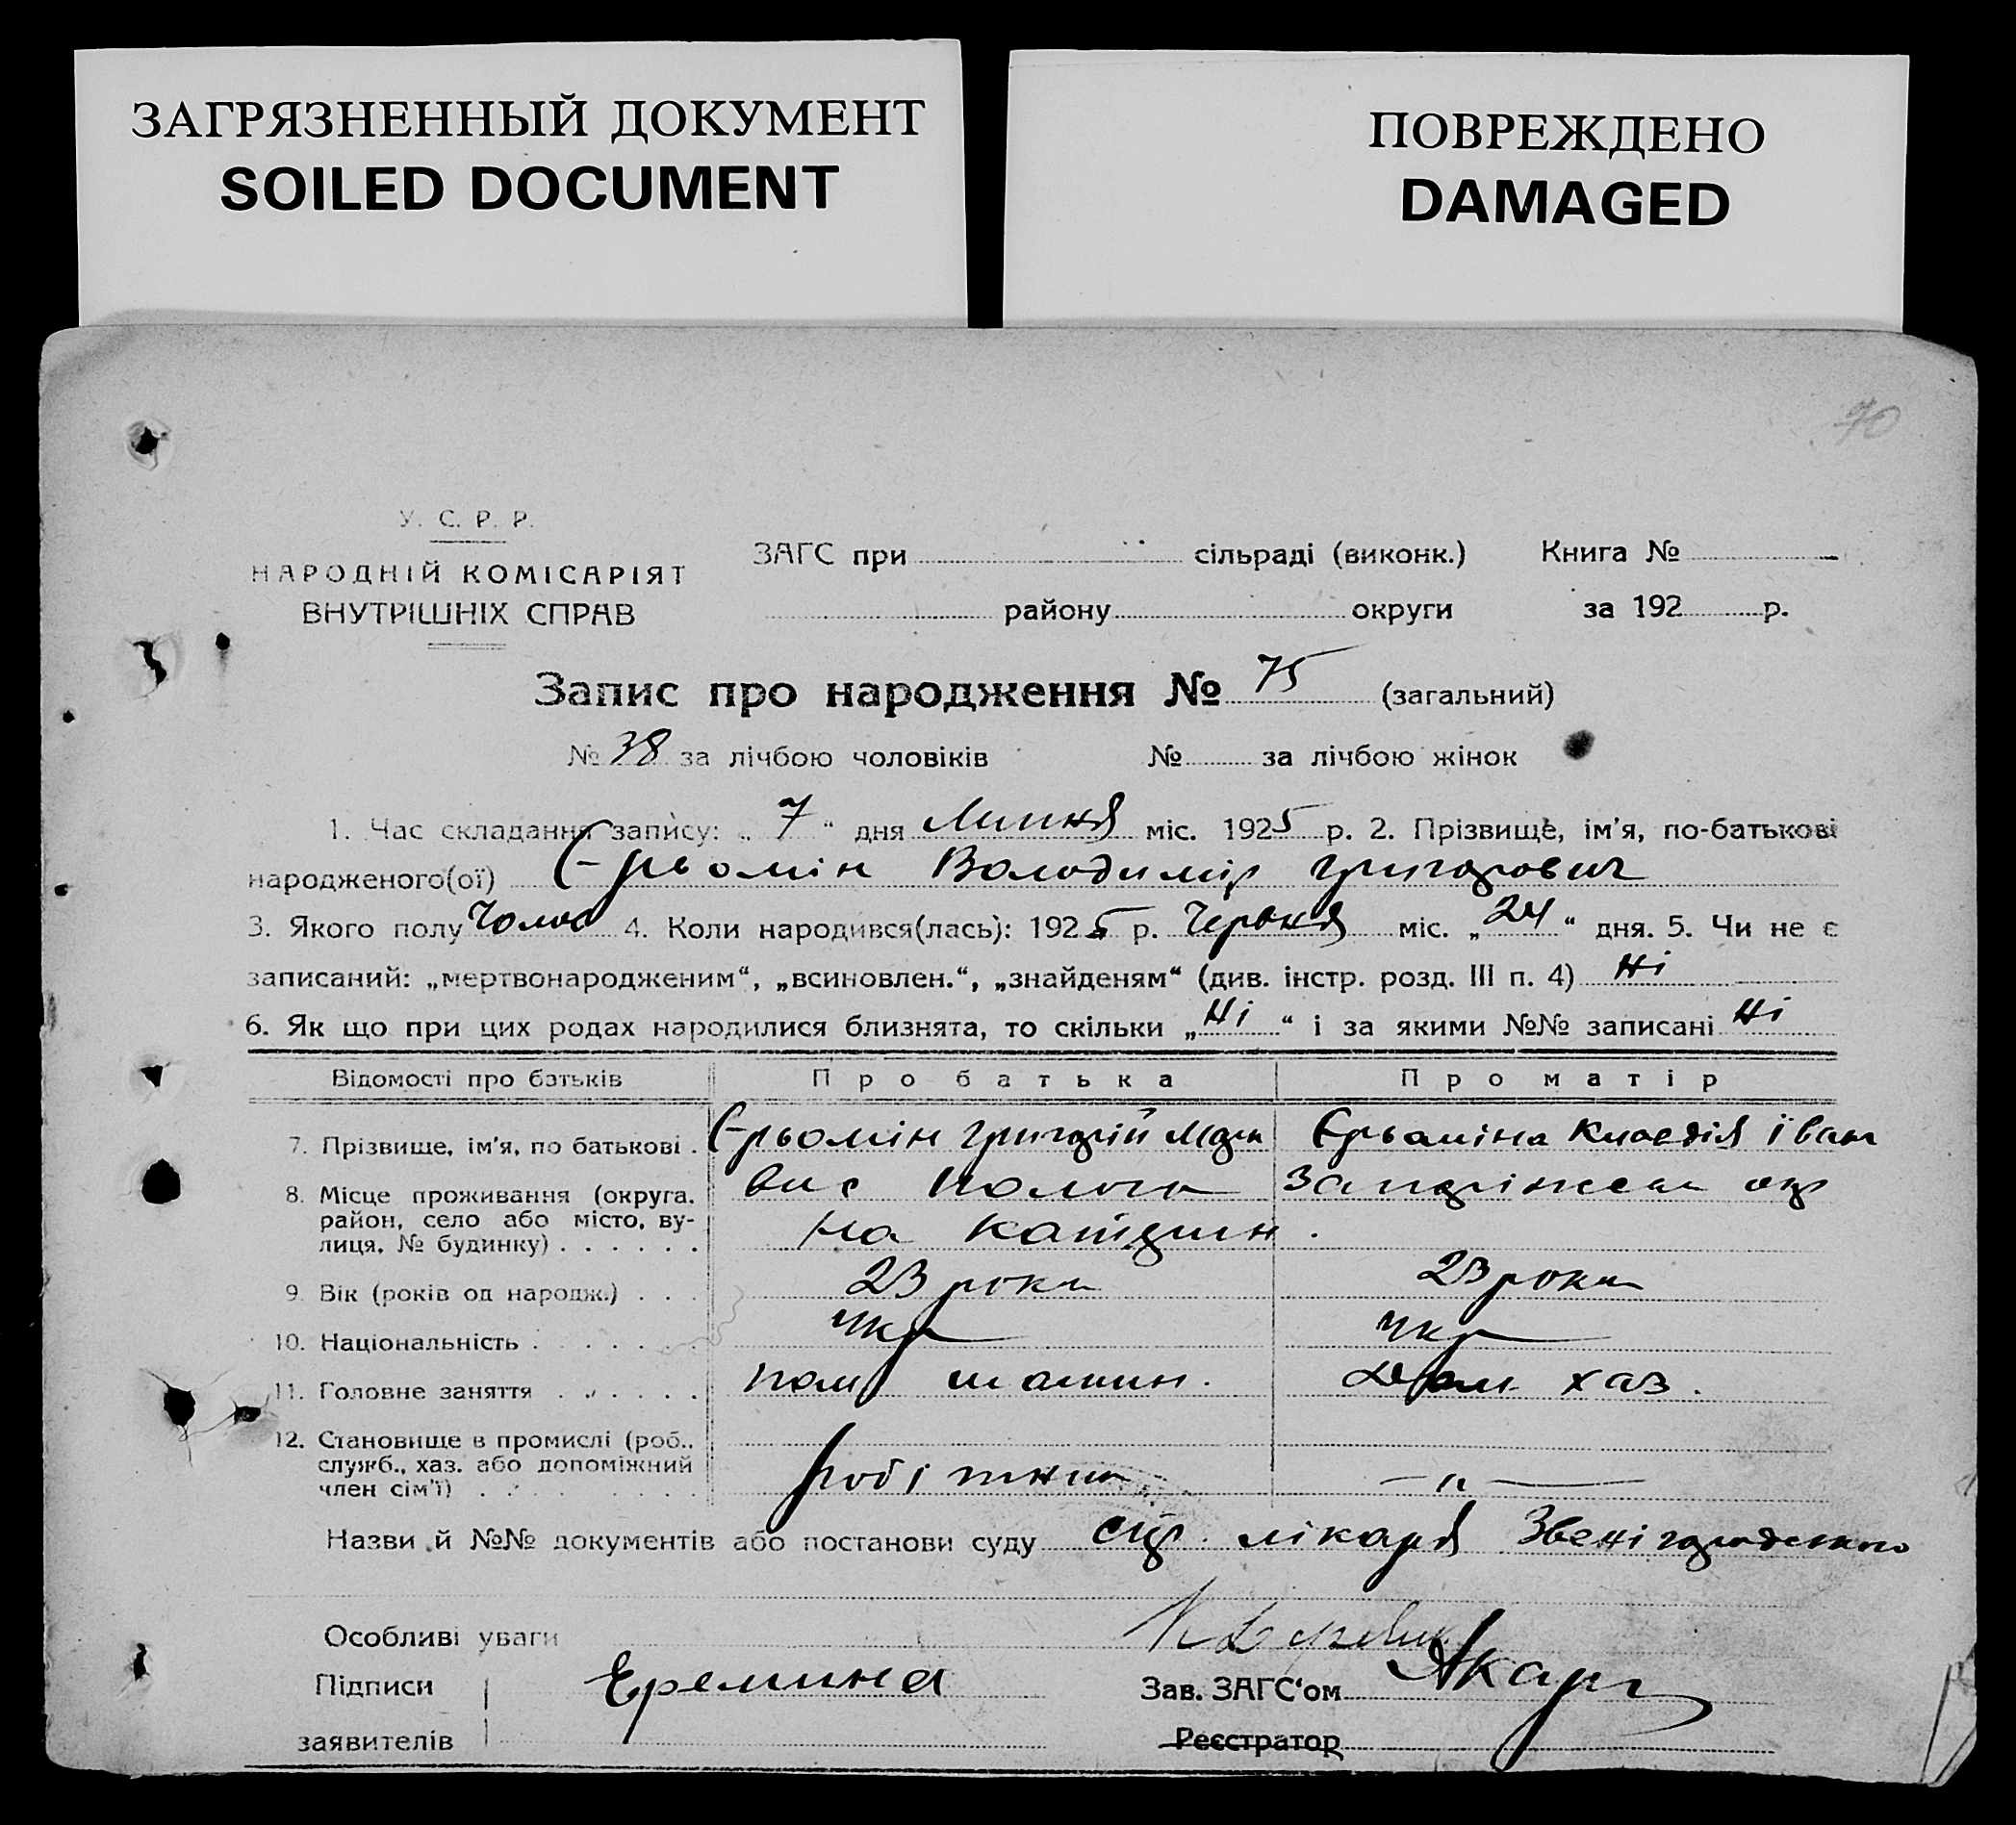 ЗАГРЯЗНЕННЫЙ ДОКУМЕНТ
SOILED DOCUMENT
ПОВРЕЖДЕНО
DAMAGED
70
У. С. Р. Р.
НАРОДНІЙ КОМІСАРІЯТ
ВНУТРІШНІХ СПРАВ
ЗАГС при сільраді (виконк.) Книга №
району округи за 192 р.
Запис про народження № 75 (загальний)
№ 38 за лічбою чоловіків № за лічбою жінок
1. Час складання запису: „ 7 “ дня Липня міс. 1925 р. 2. Прізвище, ім'я, по-батькові
народженого(ої) Єрьомін Володимір Григорович
3. Якого полу Чолов 4. Коли народився(лась): 1925 р. Червня міс. „ 24 “ дня. 5. Чи не є
записаний: „мертвонародженим“, „всиновлен.“, „знайденям“ (див. інстр. розд. III п. 4) Ні
6. Як що при цих родах народилися близнята, то скільки „ Ні “ і за якими №№ записані Ні
Відомості про батьків Про батька Про матір
7. Прізвище, ім'я, по батькові . Єрьомін Григорій Єрьоміна Клавдія Іван
8. Місце проживання (округа, район, село або місто, вулиця, № будинку) . . . . . .
9. Вік (років од народж.) . . . 23 роки 23 роки
10. Національність . . . . . . . Укр Укр
11. Головне заняття . . . . . . пом машин. дом хаз.
12. Становище в промислі (роб.,
служб., хаз. або допоміжний
член сім'ї) . . . . . . . . робітник — „ —
Назви й №№ документів або постанови суду лікаря Звенігородсько
Особливі уваги
Підписи Еремина Зав. ЗАГС‘ом
заявителів Реєстратор